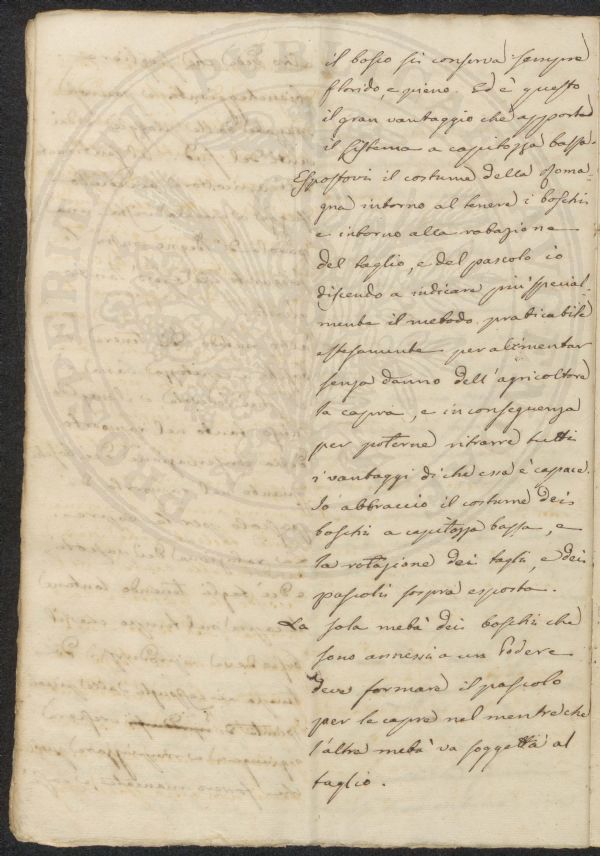 il bosco si conserva sempre
florido, e pieno. Ed è questo
il gran vantaggio che apporta
il sistema a capitozza bassa.
Espostovi il costume della Roma=
gna intorno al tenere i boschi
e intorno alla rotazione
del taglio, e del pascolo io
discendo a indicare più special=
mente il metodo praticabile
estesamente per alimentar
senza danno dell'agricoltore
la capra, e in conseguenza
per poterne ritrarre tutti
i vantaggi di che essa è capace.
Io abbraccio il costume dei
boschi a capitozza bassa, e
la rotazione dei tagli, e dei
pascoli sopra esposta.
La sola metà dei boschi che
sono annessi a un Podere
deve formare il pascolo
per le capre nel mentre che
l'altra metà va soggetta al
taglio.